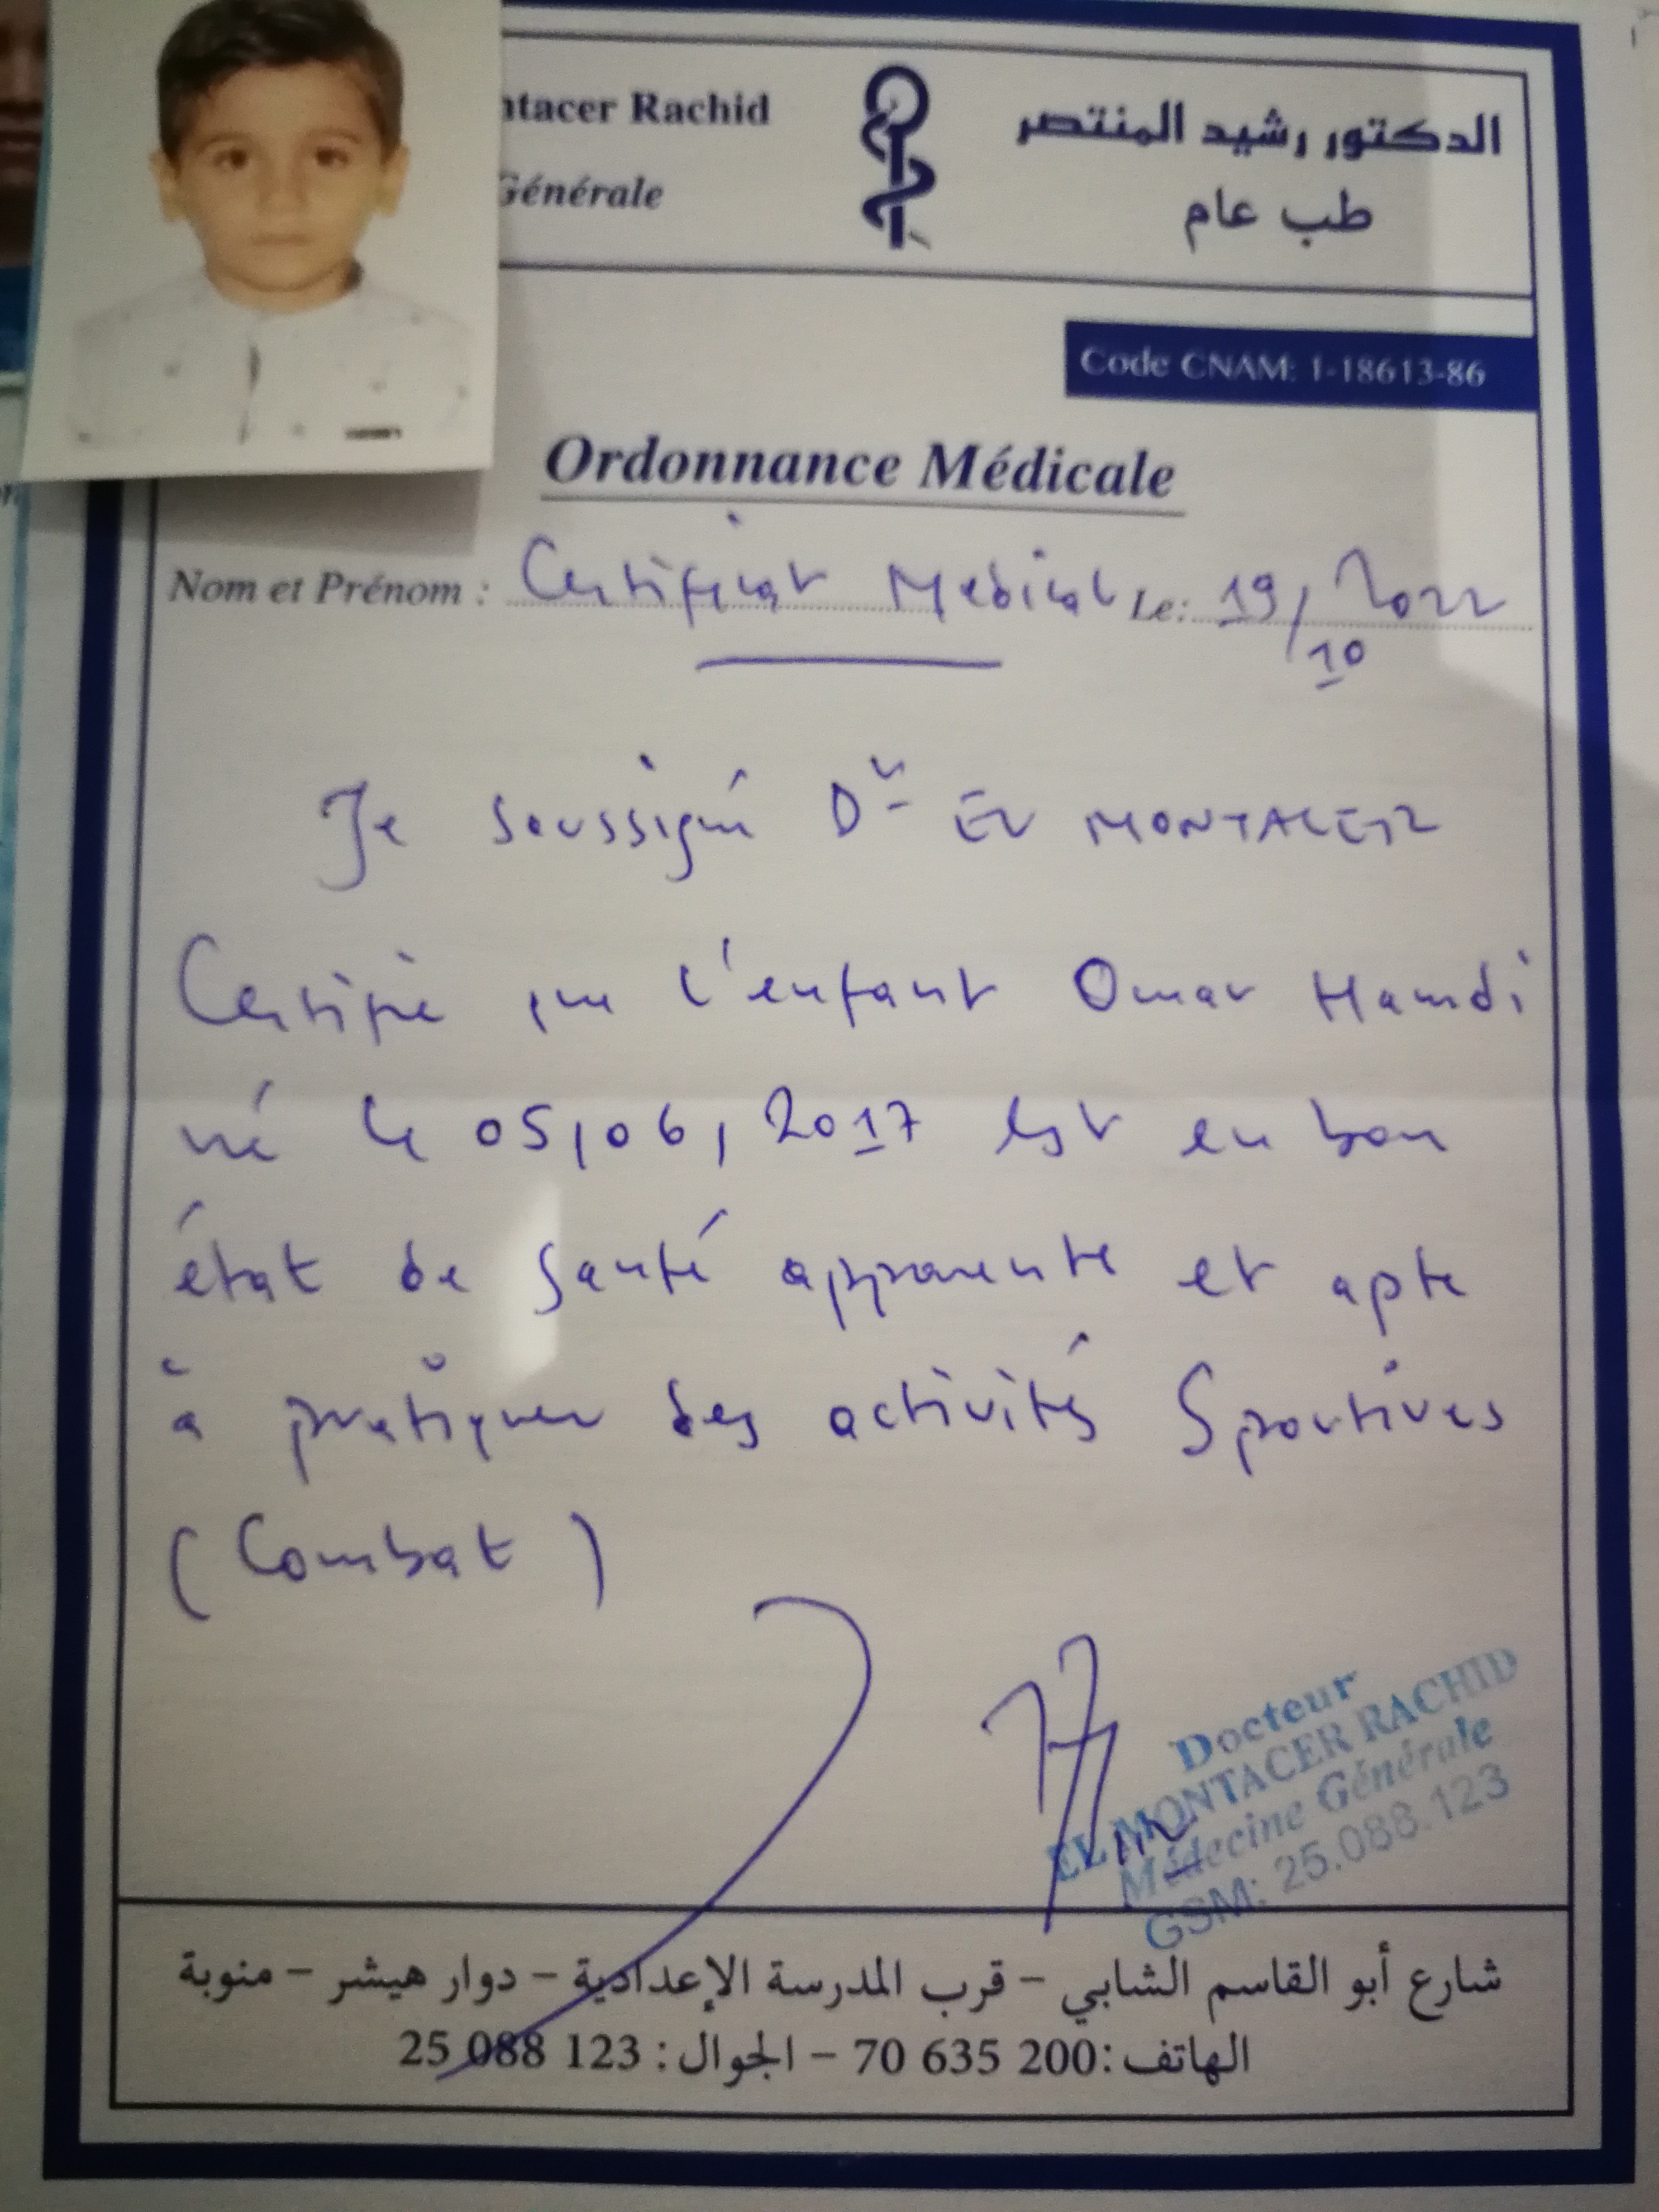 ntacer Rachid
Générale
الدكتور رشيد المنتصر
طب عام
Code CNAM: 1-18613-86
Ordonnance Médicale
Nom et Prénom : Certificat Medical Le: 19/10/2022
Je soussigné Dr EL MONTACER
Certifie que l'enfant Omar Hamdi
né le 05/06/2017 est en bon
état de santé apparente et apte
à pratiquer des activités Sportives
(Combat)
Docteur
EL MONTACER RACHID
Médecine Générale
GSM: 25.088.123
شارع أبو القاسم الشابي - قرب المدرسة الإعدادية - دوار هيشر - منوبة
الهاتف: 200 635 70 - الجوال: 123 088 25